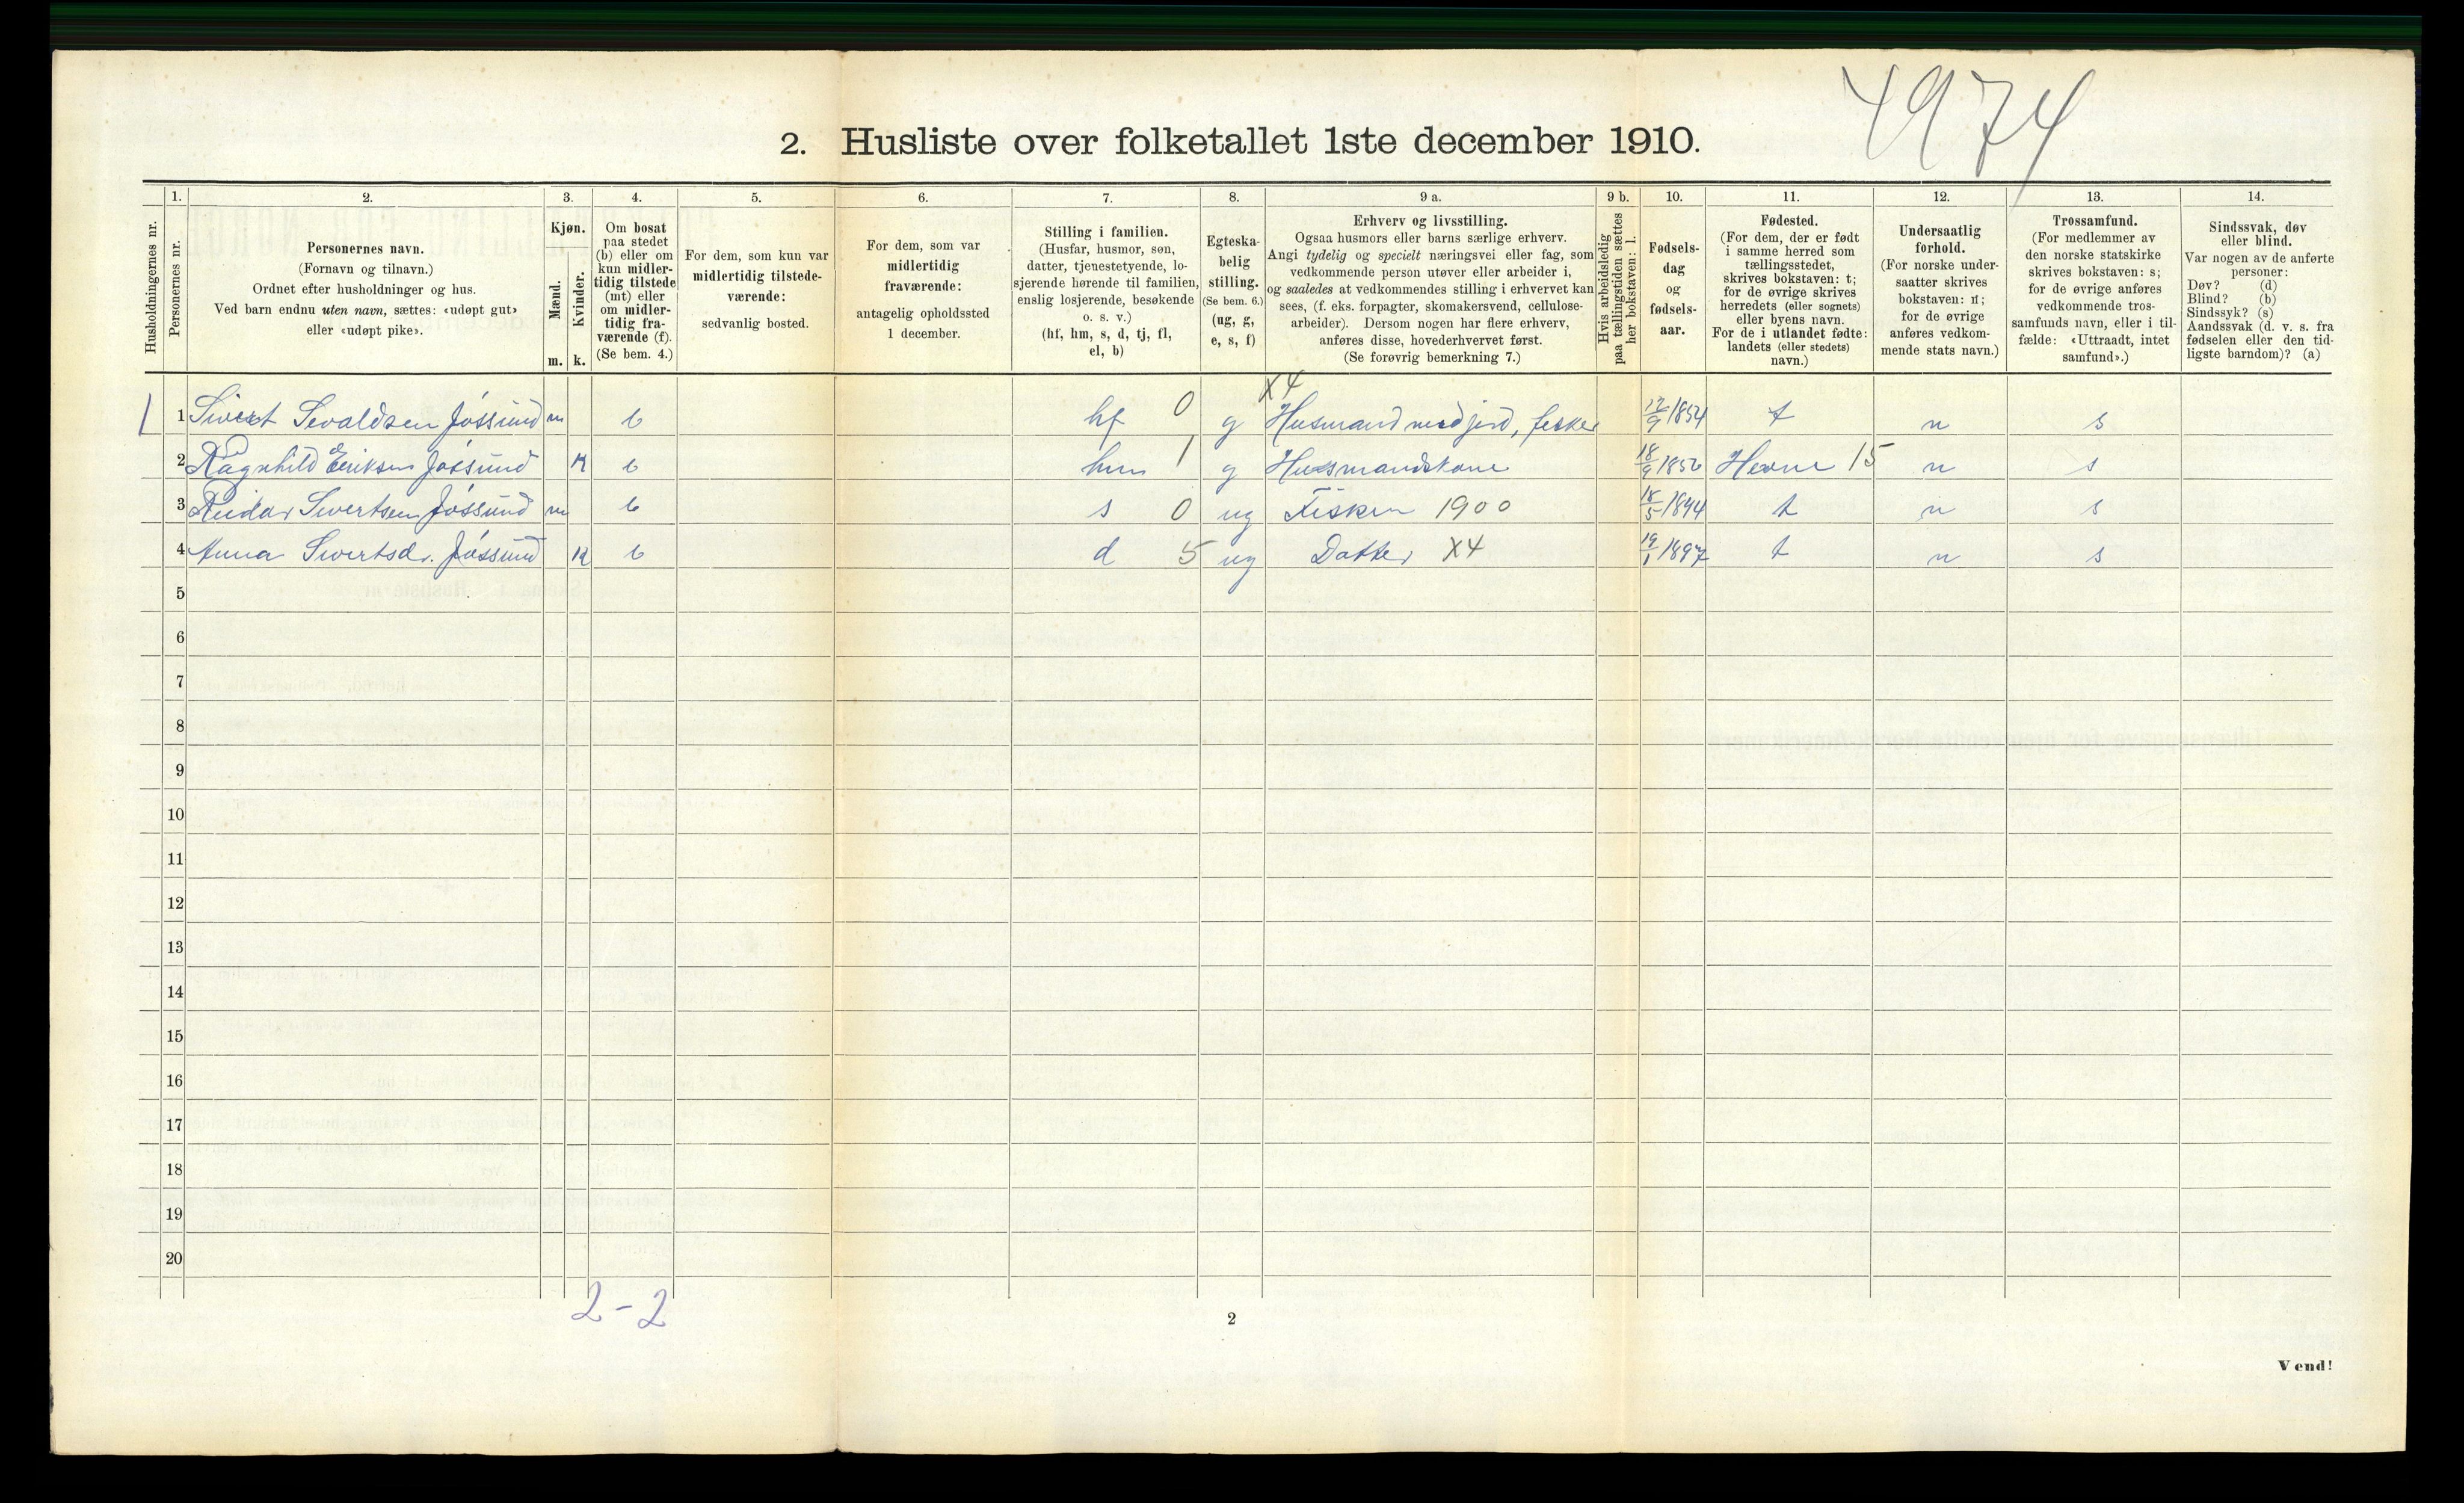 4974
2. Husliste over folketallet 1ste december 1910.
1. 2. 3. 4. 5. 6. 7. 8. 9 a. 9 b. 10. 11. 12. 13. 14.
Husholdningernes nr.
Personernes nr.
Personernes navn.
(Fornavn og tilnavn.)
Ordnet efter husholdninger og hus.
Ved barn endnu uten navn, sættes: «udøpt gut»
eller «udøpt pike».
Kjøn.
Mænd.
Kvinder.
m. k.
Om bosat
paa stedet
(b) eller om
kun midler-
tidig tilstede
(mt) eller
om midler-
tidig fra-
værende (f).
(Se bem. 4.)
For dem, som kun var
midlertidig tilstede-
værende:
sedvanlig bosted.
For dem, som var
midlertidig
fraværende:
antagelig opholdssted
1 december.
Stilling i familien.
(Husfar, husmor, søn,
datter, tjenestetyende, lo-
sjerende hørende til familien,
enslig losjerende, besøkende
o. s. v.)
(hf, hm, s, d, tj, fl,
el, b)
Egteska-
belig
stilling.
(Se bem. 6.)
(ug, g,
e, s, f)
Erhverv og livsstilling.
Ogsaa husmors eller barns særlige erhverv.
Angi tydelig og specielt næringsvei eller fag, som
vedkommende person utøver eller arbeider i,
og saaledes at vedkommendes stilling i erhvervet kan
sees, (f. eks. forpagter, skomakersvend, cellulose-
arbeider). Dersom nogen har flere erhverv,
anføres disse, hovederhvervet først.
(Se forøvrig bemerkning 7.)
Hvis arbeidsledig
paa tællingstiden sættes
her bokstaven: l.
Fødsels-
dag
og
fødsels-
aar.
Fødested.
(For dem, der er født
i samme herred som
tællingsstedet,
skrives bokstaven: t;
for de øvrige skrives
herredets (eller sognets)
eller byens navn.
For de i utlandet fødte:
landets (eller stedets)
navn.)
Undersaatlig
forhold.
(For norske under-
saatter skrives
bokstaven: n;
for de øvrige
anføres vedkom-
mende stats navn.)
Trossamfund.
(For medlemmer av
den norske statskirke
skrives bokstaven: s;
for de øvrige anføres
vedkommende tros-
samfunds navn, eller i til-
fælde: «Uttraadt, intet
samfund».)
Sindssvak, døv
eller blind.
Var nogen av de anførte
personer:
Døv? (d)
Blind? (b)
Sindssyk? (s)
Aandssvak (d. v. s. fra
fødselen eller den tid-
ligste barndom)? (a)
X4
1 1 Sivert Sevaldsen Jøssund m b hf 0 g Husmand med jord, fisker 12/9 1854 t n s
2 Ragnhild Eriksen Jøssund k b hm 1 g Husmandskone 18/9 1856 Hevne 15 n s
3 Reidar Sivertsen Jøssund m b s 0 ug Fisker 1900 18/5 1894 t n s
4 Anna Sivertsdr. Jøssund k b d 5 ug Datter X4 19/1 1897 t n s
5
6
7
8
9
10
11
12
13
14
15
16
17
18
19
20
2-2
2
Vend!